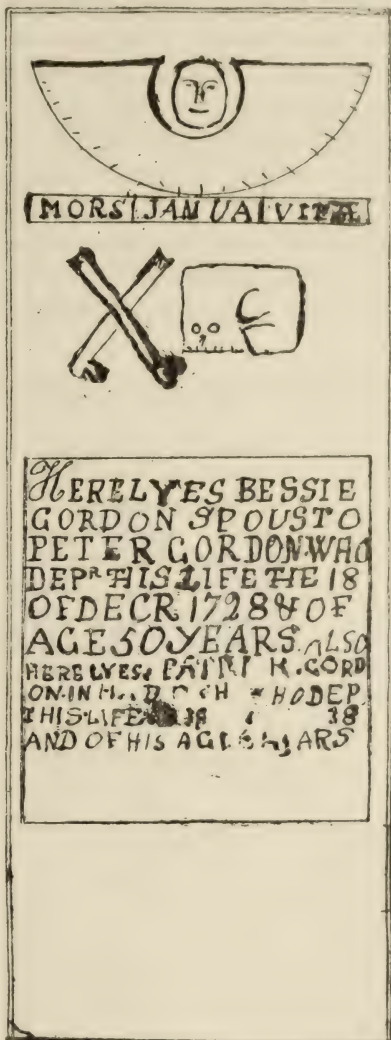 MORS JANUA VITÆ
HERE LYES BESSIE
GORDON SPOUS TO
PETER GORDON·WHO
DEPR THIS LIFE THE 18
OF DECR 1728 & OF
AGE 50 YEARS ALSO
HERE LYES GORD
ON·IN DEP
THIS·LIFE 38
AND OF HIS AGE